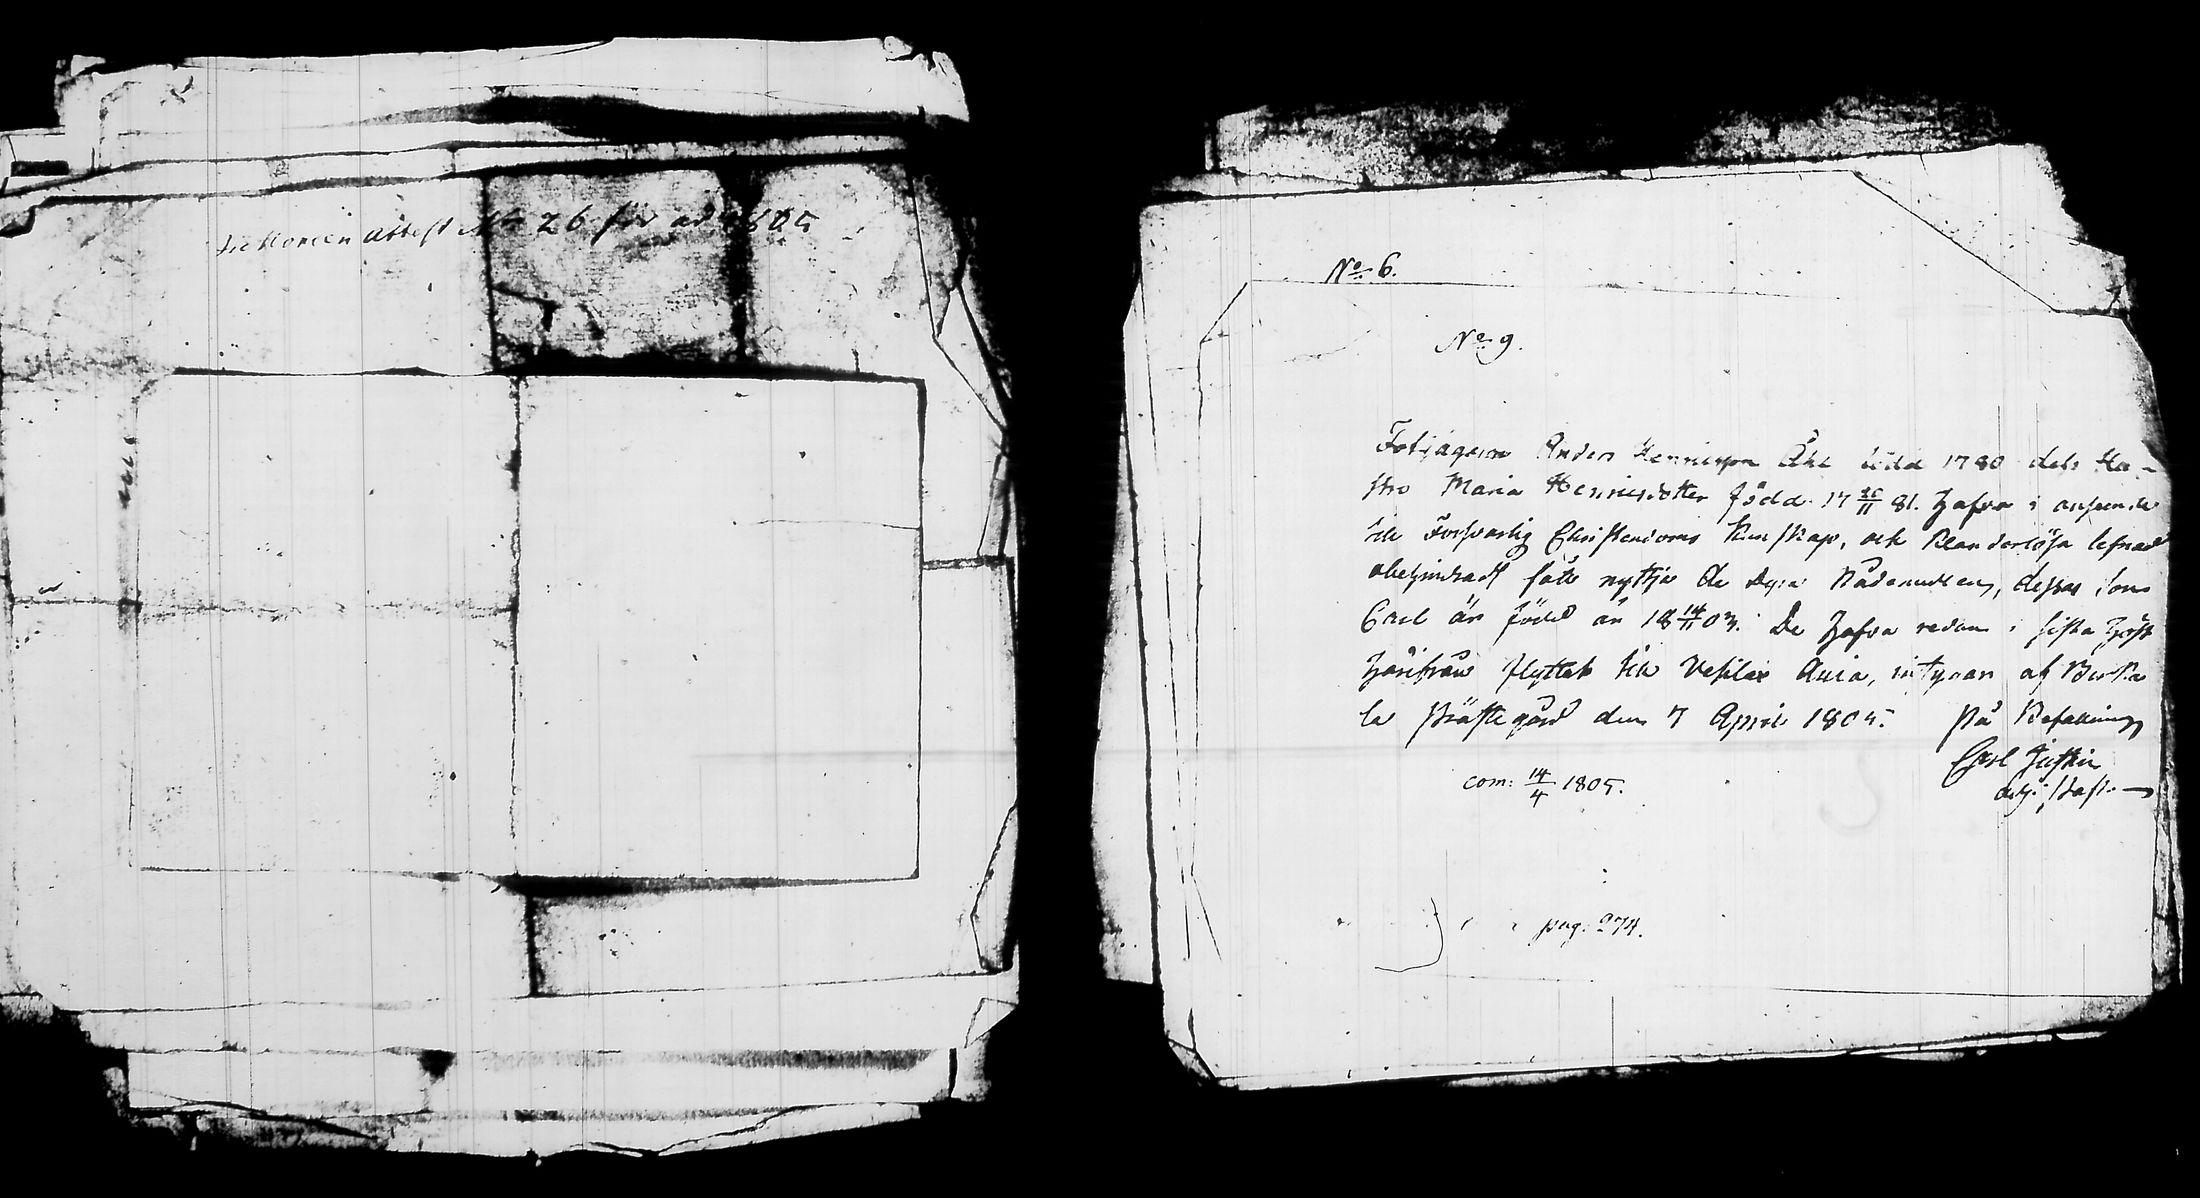 attest No 26 för år 1805
No 6.
No 9.
Fotjägaren Anders Henricsson Åhl född 1780 dels Hu-
stro Maria Henricsdotter född 17 26/11 81. hafva i anseende
till Försvarlig Christendoms Kunskap, och Klanderlösa lefnad
obehindradt fått nyttja de Dyra Nådemedlen, dessas Son
Carl är född år 18 14/11 03. De hafva redan i sista höst
härifrån flyttat till Vesilax Ania, intygar af Birka
la Prästegård den 7 April 1805. På Befallning
Carl
adj:
com: 14/4 1805.
pag. 274.